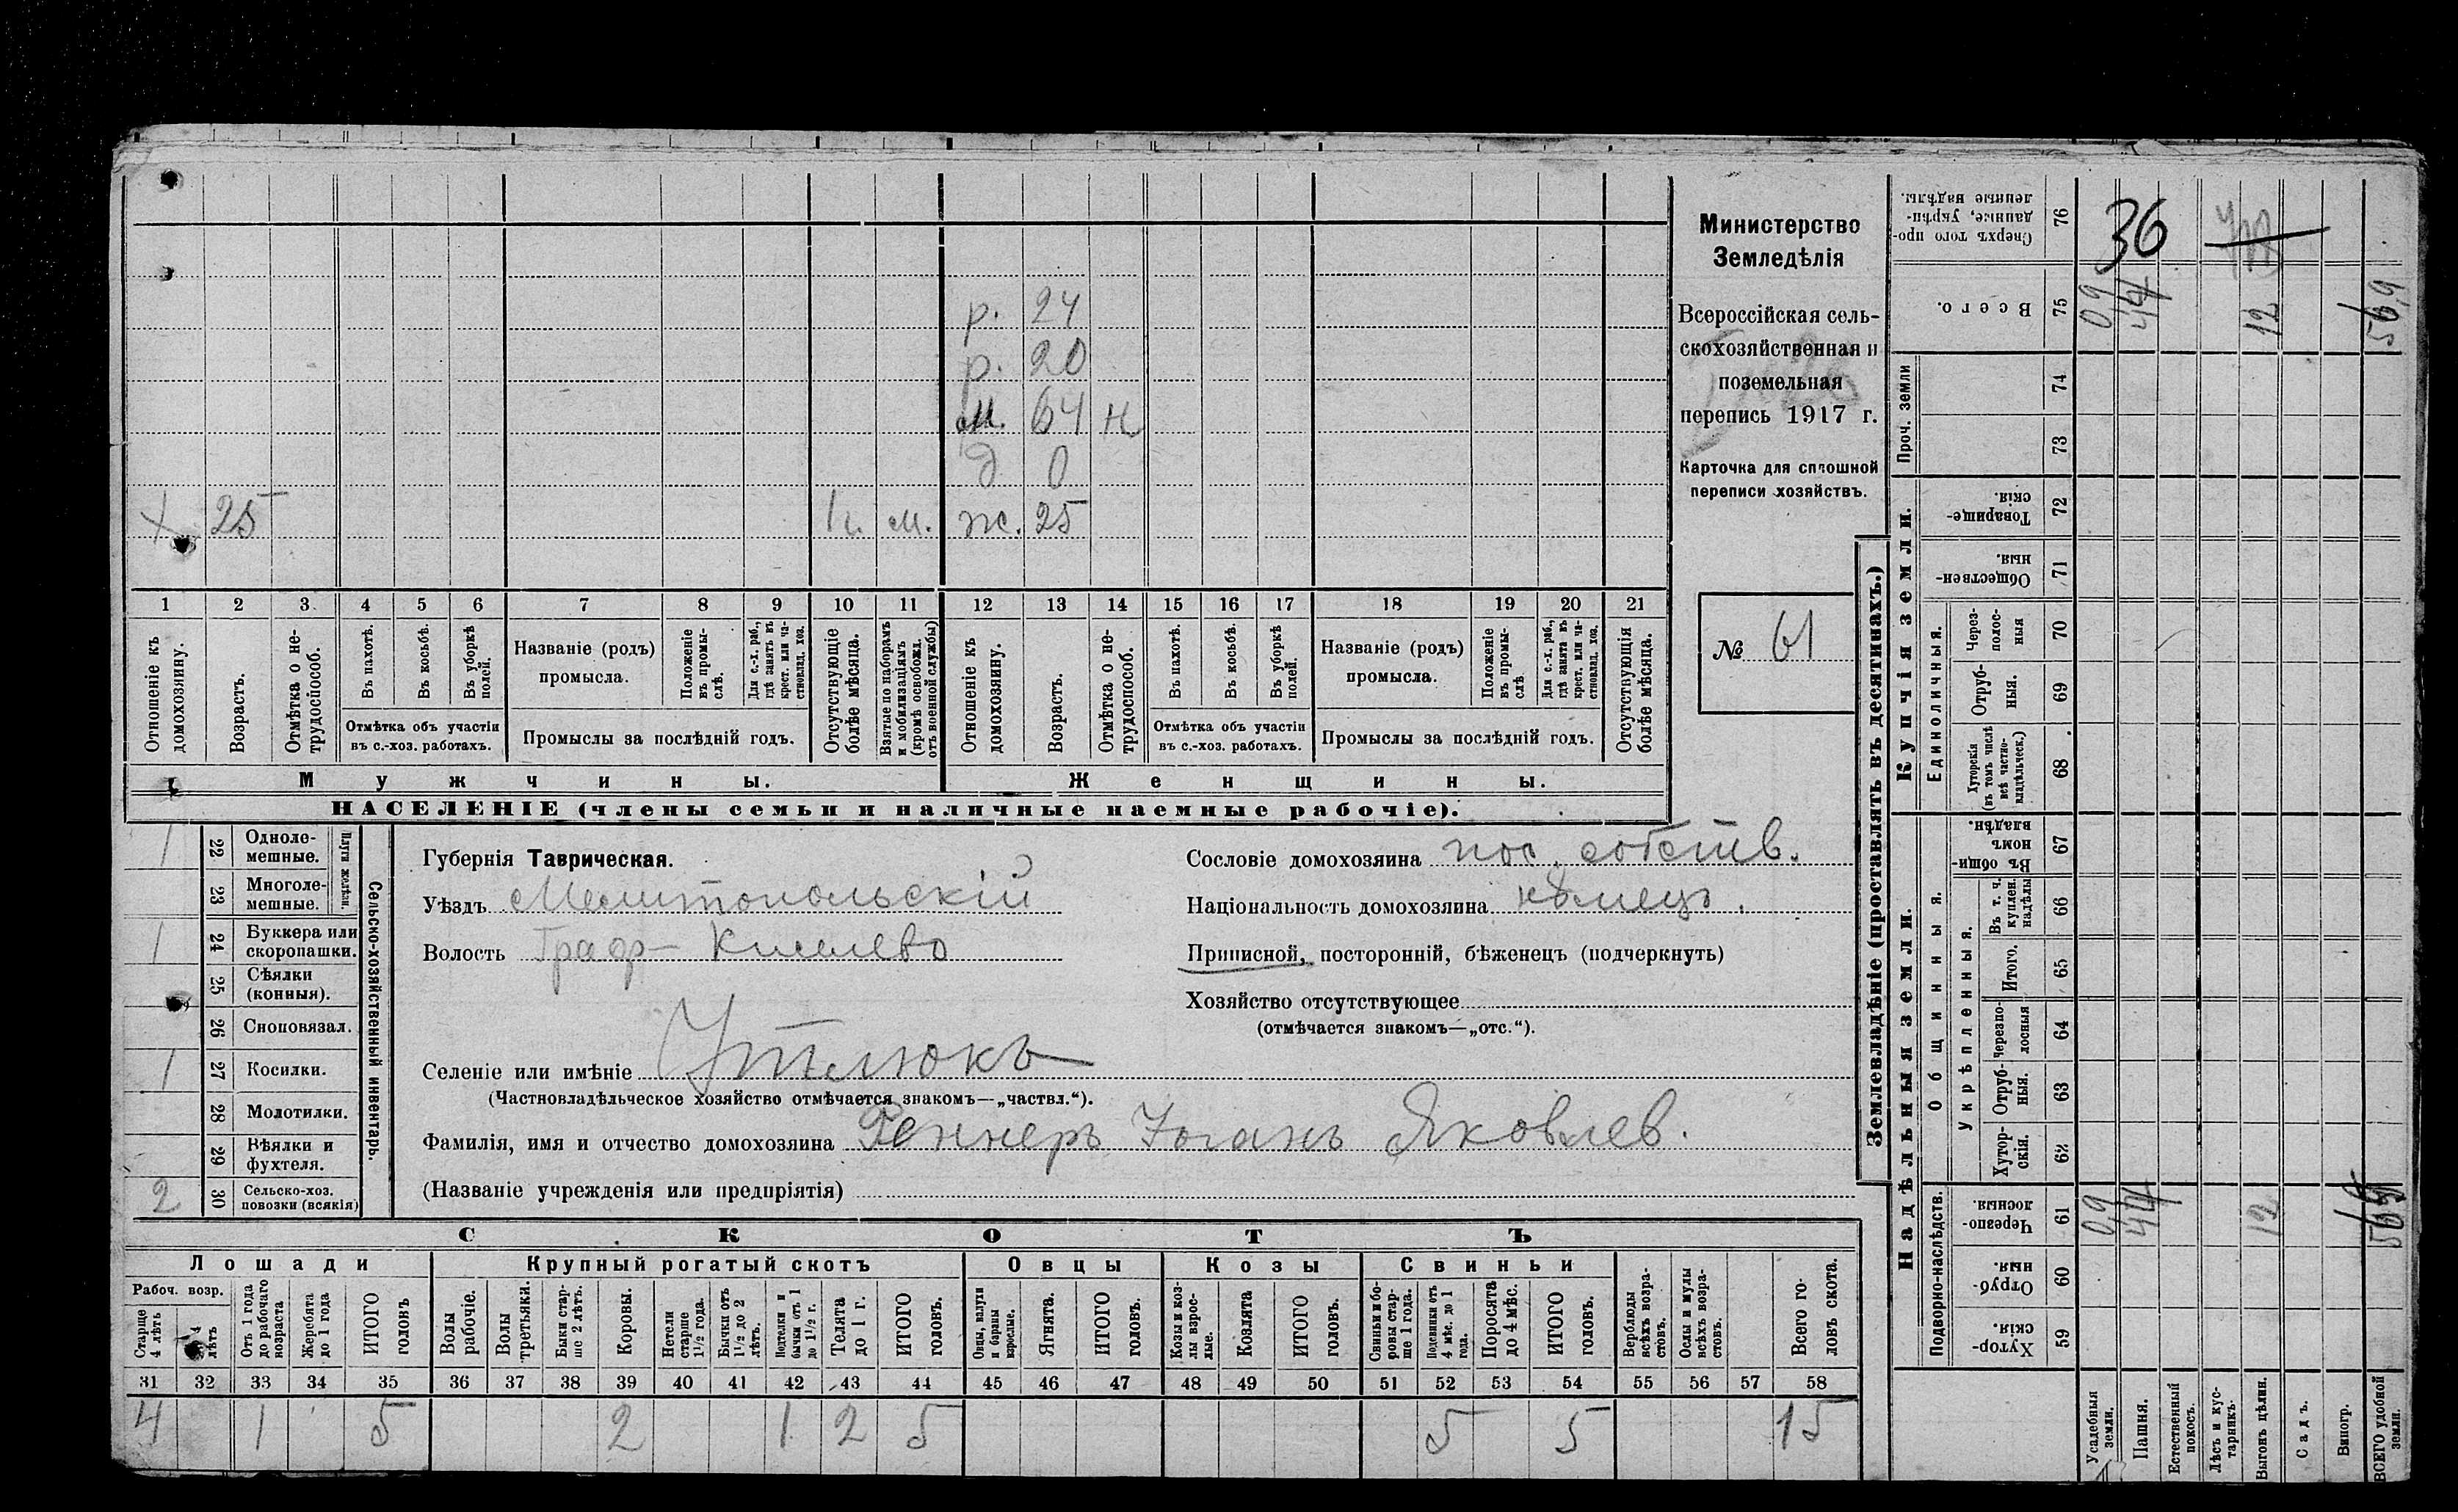 р. 24
р. 20
м. 64 н
д 0
х 25 1 г. м. ж. 25
1 2 3 4 5 6 7 8 9 10 11 12 13 14 15 16 17 18 19 20 21
Отношеніе къ домохозяину.
Возрастъ.
Отмѣтка о не-трудоспособ.
Въ пахотѣ.
Въ косьбѣ.
Въ уборкѣ полей.
Отмѣтка объ участіи въ с.-хоз. работахъ.
Названіе (родъ) промысла.
Положеніе въ промы-слѣ.
Для с.-х. раб., гдѣ занятъ въ крест. или ча-стновлад. хоз.
Промыслы за послѣдній годъ.
Отсутствующіе болѣе мѣсяца.
Взятые по наборамъ и мобилизаціямъ (кромѣ освобожд. отъ военной службы)
Отношеніе къ домохозяину.
Возрастъ.
Отмѣтка о не-трудоспособ.
Въ пахотѣ.
Въ косьбѣ.
Въ уборкѣ полей.
Отмѣтка объ участіи въ с.-хоз. работахъ.
Названіе (родъ) промысла.
Положеніе въ промы-слѣ.
Для с.-х. раб., гдѣ занята въ крест. или ча-стновлад. хоз.
Промыслы за послѣдній годъ.
Отсутствующія болѣе мѣсяца.
Мужчины. Женщины.
НАСЕЛЕНІЕ (члены семьи и наличные наемные рабочіе).
Министерство
Земледѣлія
Всероссійская сель-
скохозяйственная и
поземельная
перепись 1917 г.
Карточка для сплошной
переписи хозяйствъ.
№ 61
Сельско-хозяйственный инвентарь.
Плуги желѣзн.
1 22 Одноле-мешные.
23 Многоле-мешные.
1 24 Буккера или скоропашки.
25 Сѣялки (конныя).
26 Сноповязал.
1 27 Косилки.
28 Молотилки.
29 Вѣялки и фухтеля.
2 30 Сельско-хоз. повозки (всякія)
Губернія Таврическая.
Уѣздъ Мелитопольскій
Волость Граф-Киселево
Селеніе или имѣніе Утлюкъ
(Частновладѣльческое хозяйство отмѣчается знакомъ—„частвл.“).
Фамилія, имя и отчество домохозяина Реннеръ Іоганъ Яковлев.
(Названіе учрежденія или предпріятія)
Сословіе домохозяина пос. собств.
Національность домохозяина нѣмецъ.
Приписной, посторонній, бѣженецъ (подчеркнуть)
Хозяйство отсутствующее
(отмѣчается знакомъ—„отс.“).
СКОТЪ
Лошади Крупный рогатый скотъ Овцы Козы Свиньи
Рабоч. возр.
Старше 4 лѣтъ
лѣтъ
Отъ 1 года до рабочаго возраста
Жеребята до 1 года
ИТОГО головъ
Волы рабочіе.
Волы третьяки.
Быки стар-ше 2 лѣтъ.
Коровы.
Нетели старше 1½ года.
Бычки отъ 1½ до 2 лѣтъ.
Подтелки и бычки отъ 1 до 1½ г.
Телята до 1 г.
ИТОГО головъ.
Овцы, валухи и бараны взрослые.
Ягнята.
ИТОГО головъ.
Козы и коз-лы взрос-лые.
Козлята
ИТОГО головъ.
Свиньи и бо-ровы стар-ше 1 года.
Подсвинки отъ 4 мѣс. до 1 года.
Поросята до 4 мѣс.
ИТОГО головъ.
Верблюды всѣхъ возра-стовъ.
Ослы и мулы всѣхъ возра-стовъ.
Всего го-ловъ скота.
31 32 33 34 35 36 37 38 39 40 41 42 43 44 45 46 47 48 49 50 51 52 53 54 55 56 57 58
4 1 5 2 1 2 5 5 5 15
Землевладѣніе (проставлять въ десятинахъ.)
Надѣльныя земли. Купчія земли. Проч. земли
Подворно-наслѣдств.
Общинныя.
Укрѣпленныя.
Единоличныя.
Сверхъ того про-данные, укрѣп-ленные надѣлы. 76 36
Всего. 75 0,9 44 12 56,9
74
73
Товарище-скія. 72
Обществен-ныя. 71
Через-полос-ныя 70
Отруб-ныя. 69
Хуторскія (въ томъ числѣ всѣ частно-владѣльческ.) 68
Въ общи-номъ владѣн. 67
Въ т. ч. куплен. надѣлы 66
Итого. 65
Черезпо-лосныя 64
Отруб-ныя. 63
Хутор-скія. 62
Черезпо-лосныя. 61 0,9 44 12
Отруб-ныя. 60
Хутор-скія. 59
Усадебныя земли.
Пашня.
Естественный покосъ.
Лѣсъ и кус-тарникъ.
Выгонъ цѣлин.
Садъ.
Виногр.
ВСЕГО удобной земли.